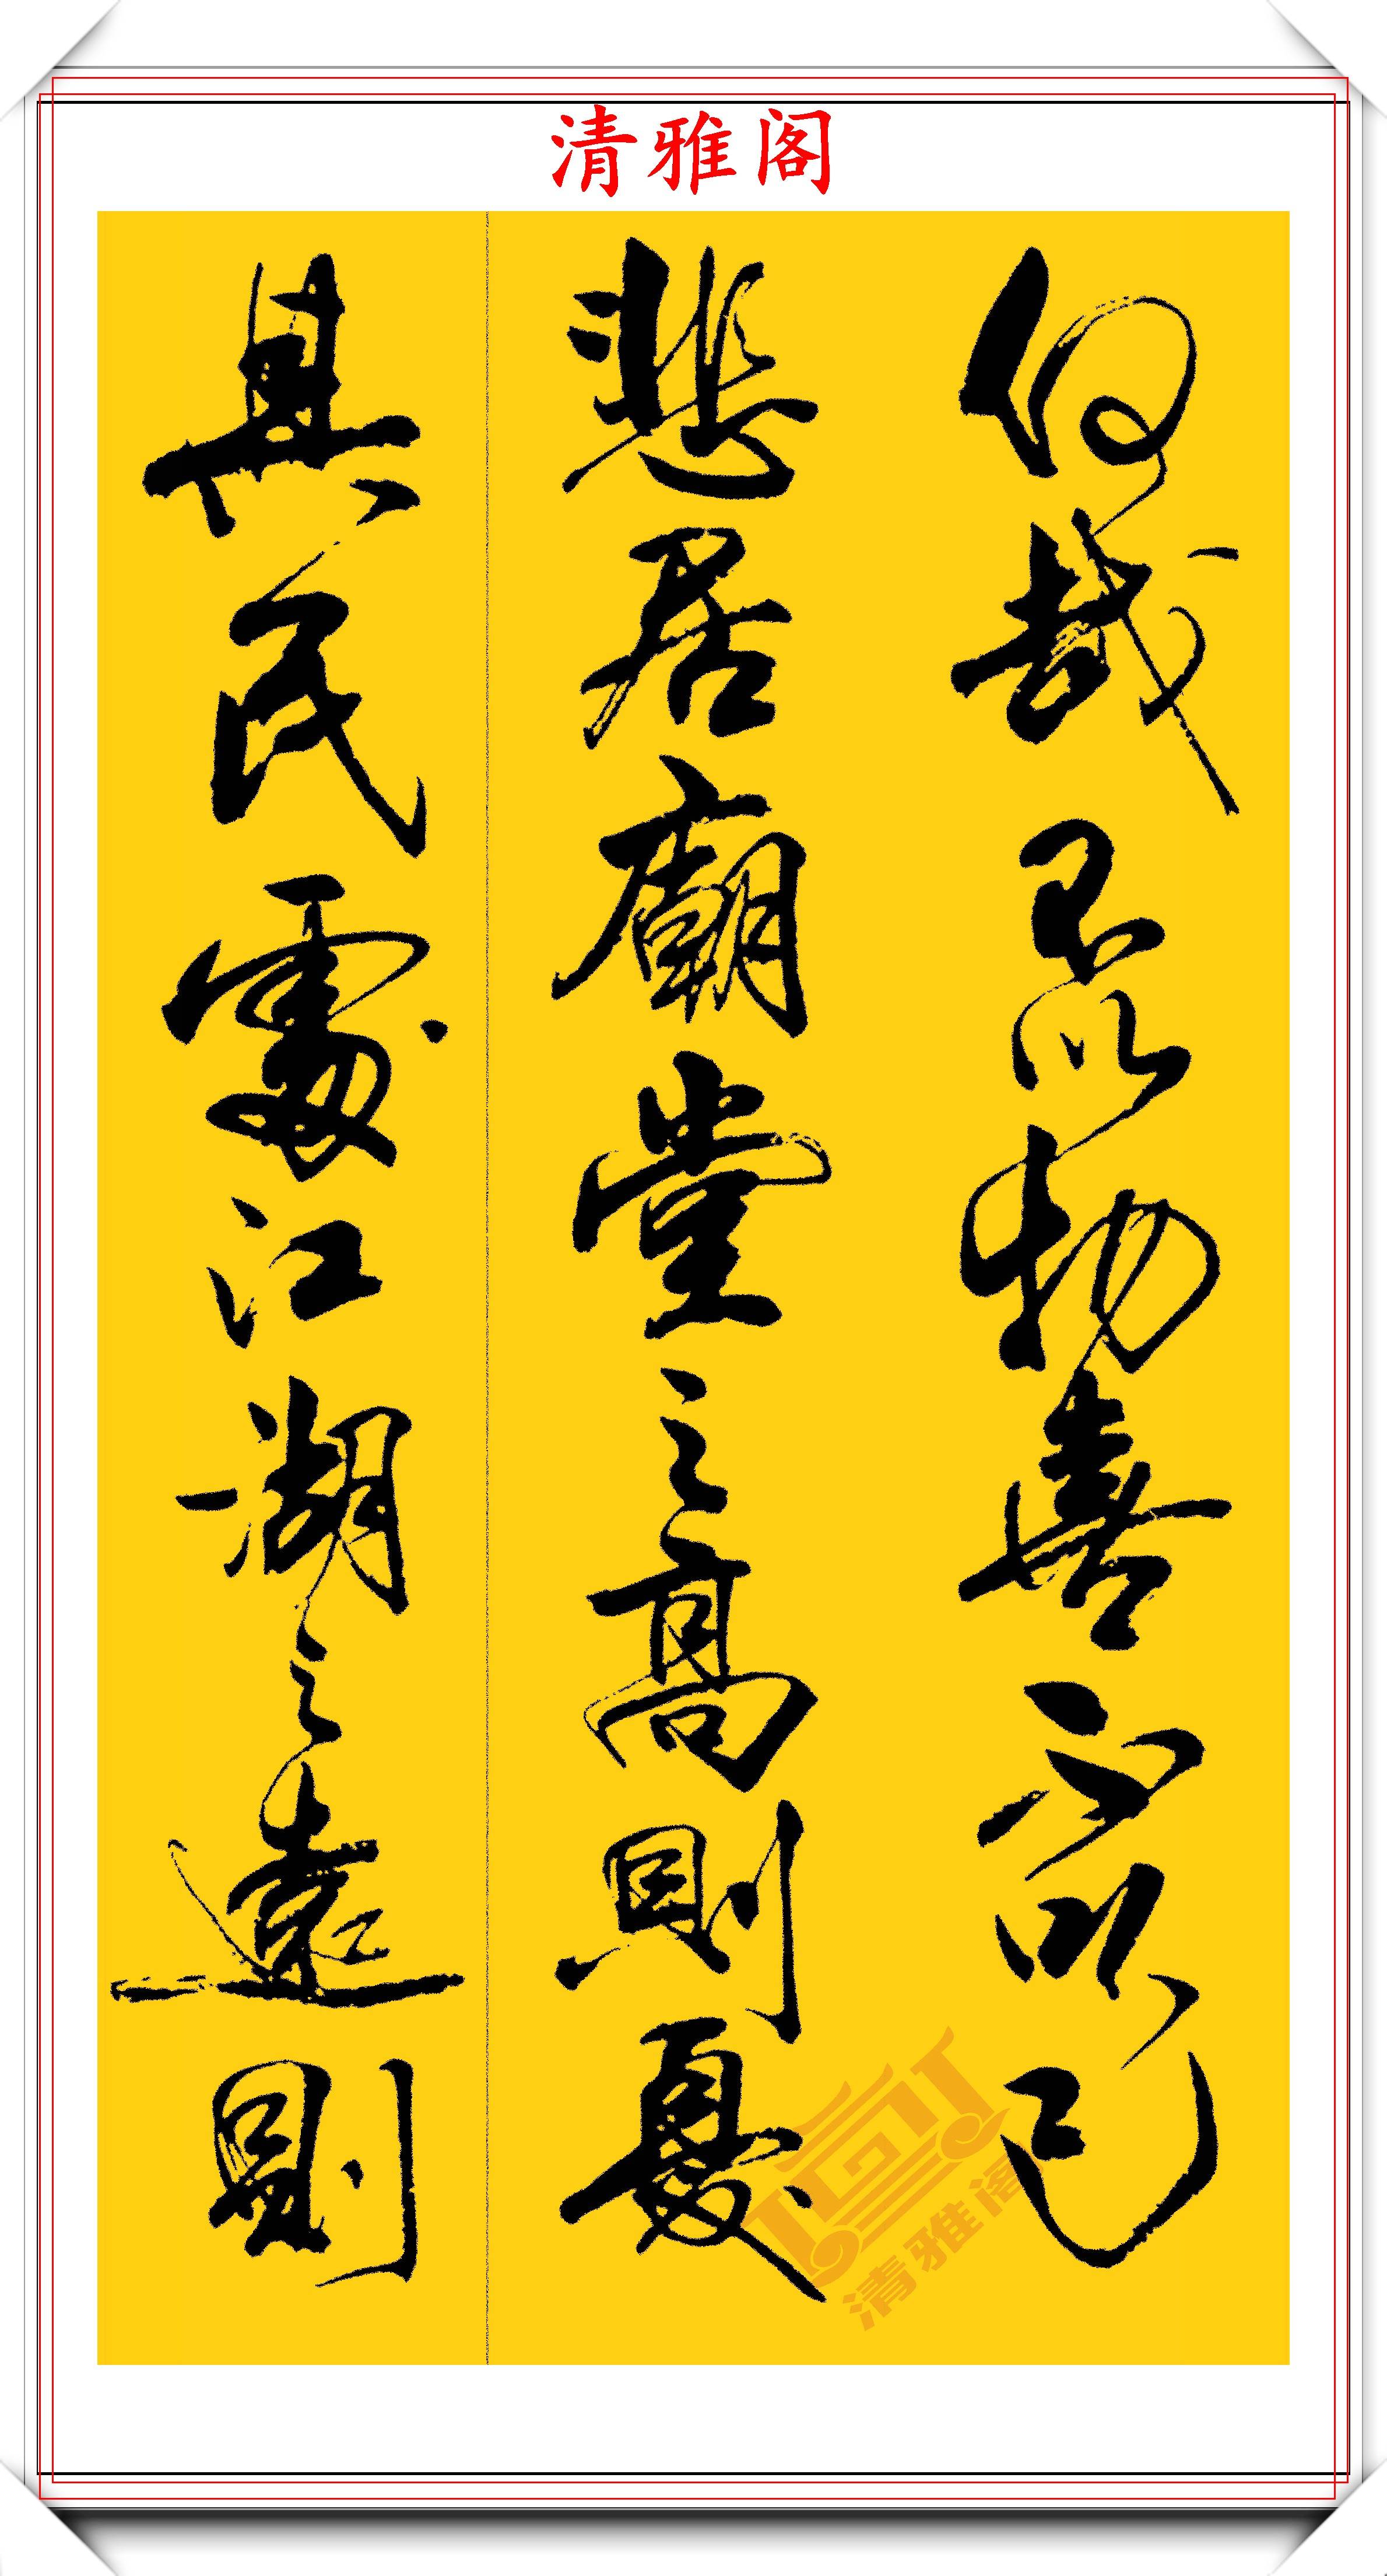 清雅阁
何哉不以物喜不以己
悲居廟堂之高則憂
其民處江湖之遠則
清雅阁